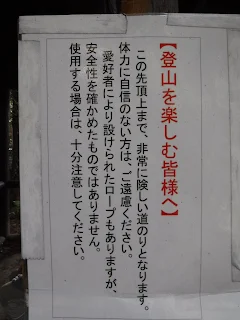 【登山を楽しむ皆様へ】
この先頂上まで、非常に険しい道のりとなります。
体力に自信のない方は、ご遠慮ください。
愛好者により設けられたロープもありますが、
安全性を確かめたものではありません。
使用する場合は、十分注意してください。